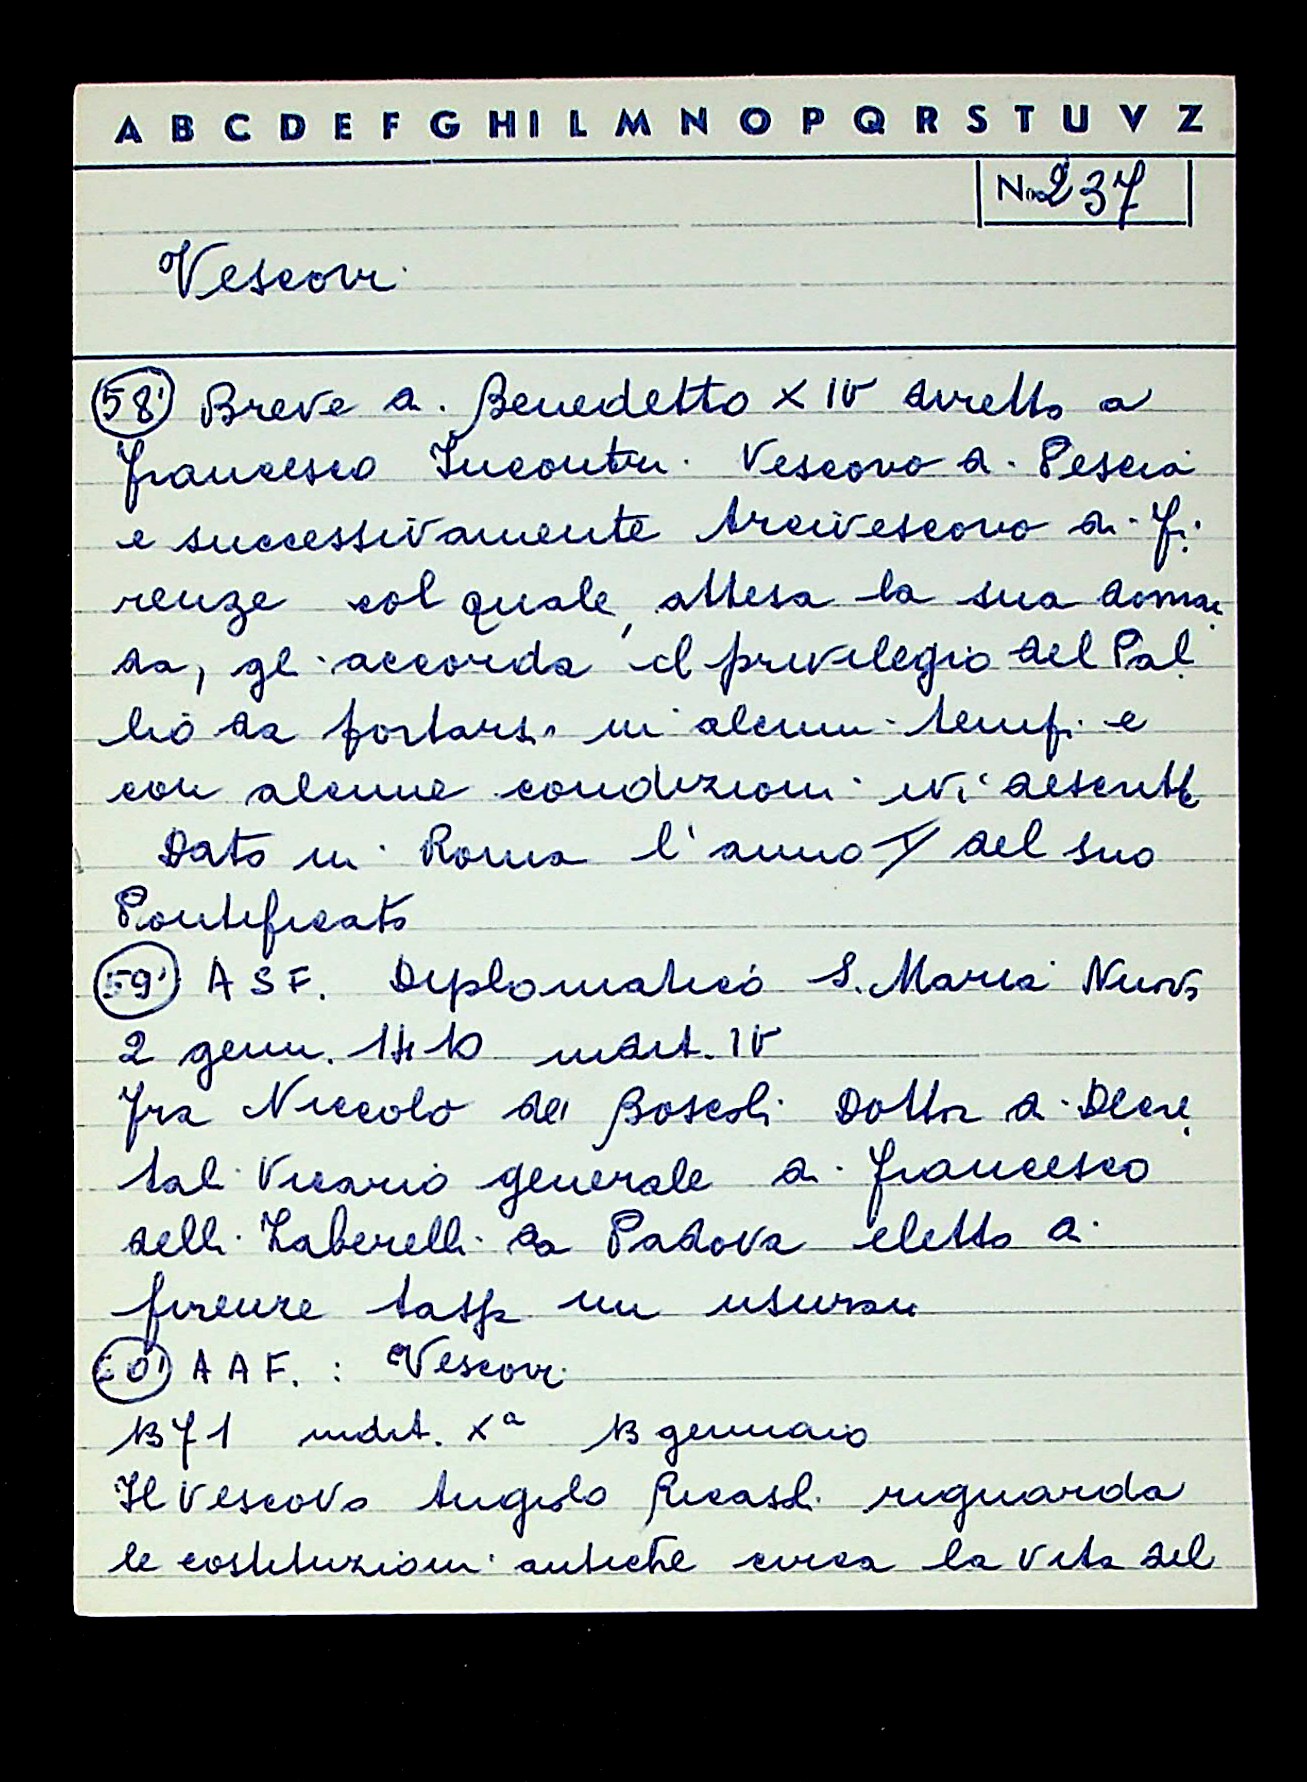 A B C D E F G H I L M N O P Q R S T U V Z
No 237
Vescovi
58') Breve di Benedetto XIV diretto a
Francesco Incontri Vescovo di Pescia
e successivamente Arcivescovo di Fi
renze col quale, attesa la sua doman
da, gli accorda il privilegio del Pal
lio da portarsi in alcuni tempi e
con alcune condizioni ivi descritte
Dato in Roma l'anno V del suo
Pontificato
59') A S F. Diplomatico S. Maria Nuova
2 genn. 1410 indit. IV
Fra Niccolò dei Boscoli Dottor di Decre
tali Vicario generale di Francesco
delli Zaberelli da Padova eletto di
Firenze tassa un usuraio
60') A A F. : Vescovi
1371 indit. Xª 13 gennaio
Il Vescovo Angiolo Ricasoli riguarda
le costituzioni antiche circa la vita del